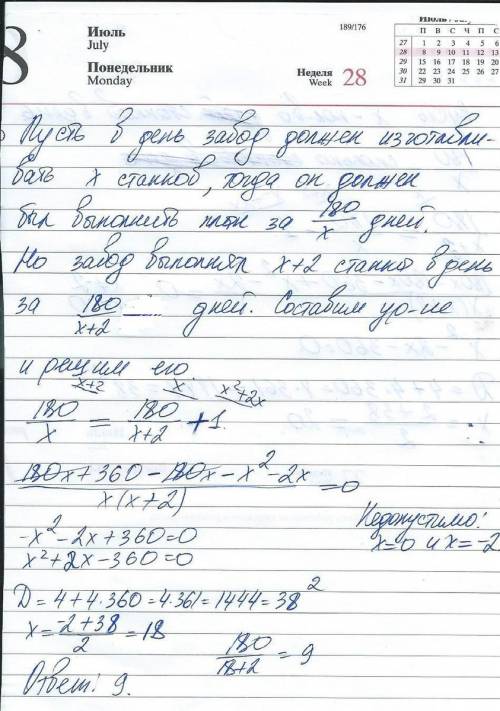 8
Июль
July
Понедельник
Monday
189/176
Неделя
Week 28
Июль/July
П В С Ч П С
27 1 2 3 4 5 6
28 8 9 10 11 12 13
29 15 16 17 18 19 20
30 22 23 24 25 26 27
31 29 30 31
Пусть в день завод должен изготавли-
вать x станков, тогда он должен
был выполнить план за 180/x дней.
Но завод выполнял x+2 станка в день
за 180/(x+2) дней. Составим ур-ие
и решим его
x+2 x x²+2x
180/x = 180/(x+2) + 1.
(180x+360-180x-x²-2x)/(x(x+2)) = 0
-x²-2x+360=0
x²+2x-360=0
Недопустимо:
x=0 и x=-2
D=4+4·360=4·361=1444=38²
x=(-2+38)/2=18
180/(18+2) = 9
Ответ: 9.